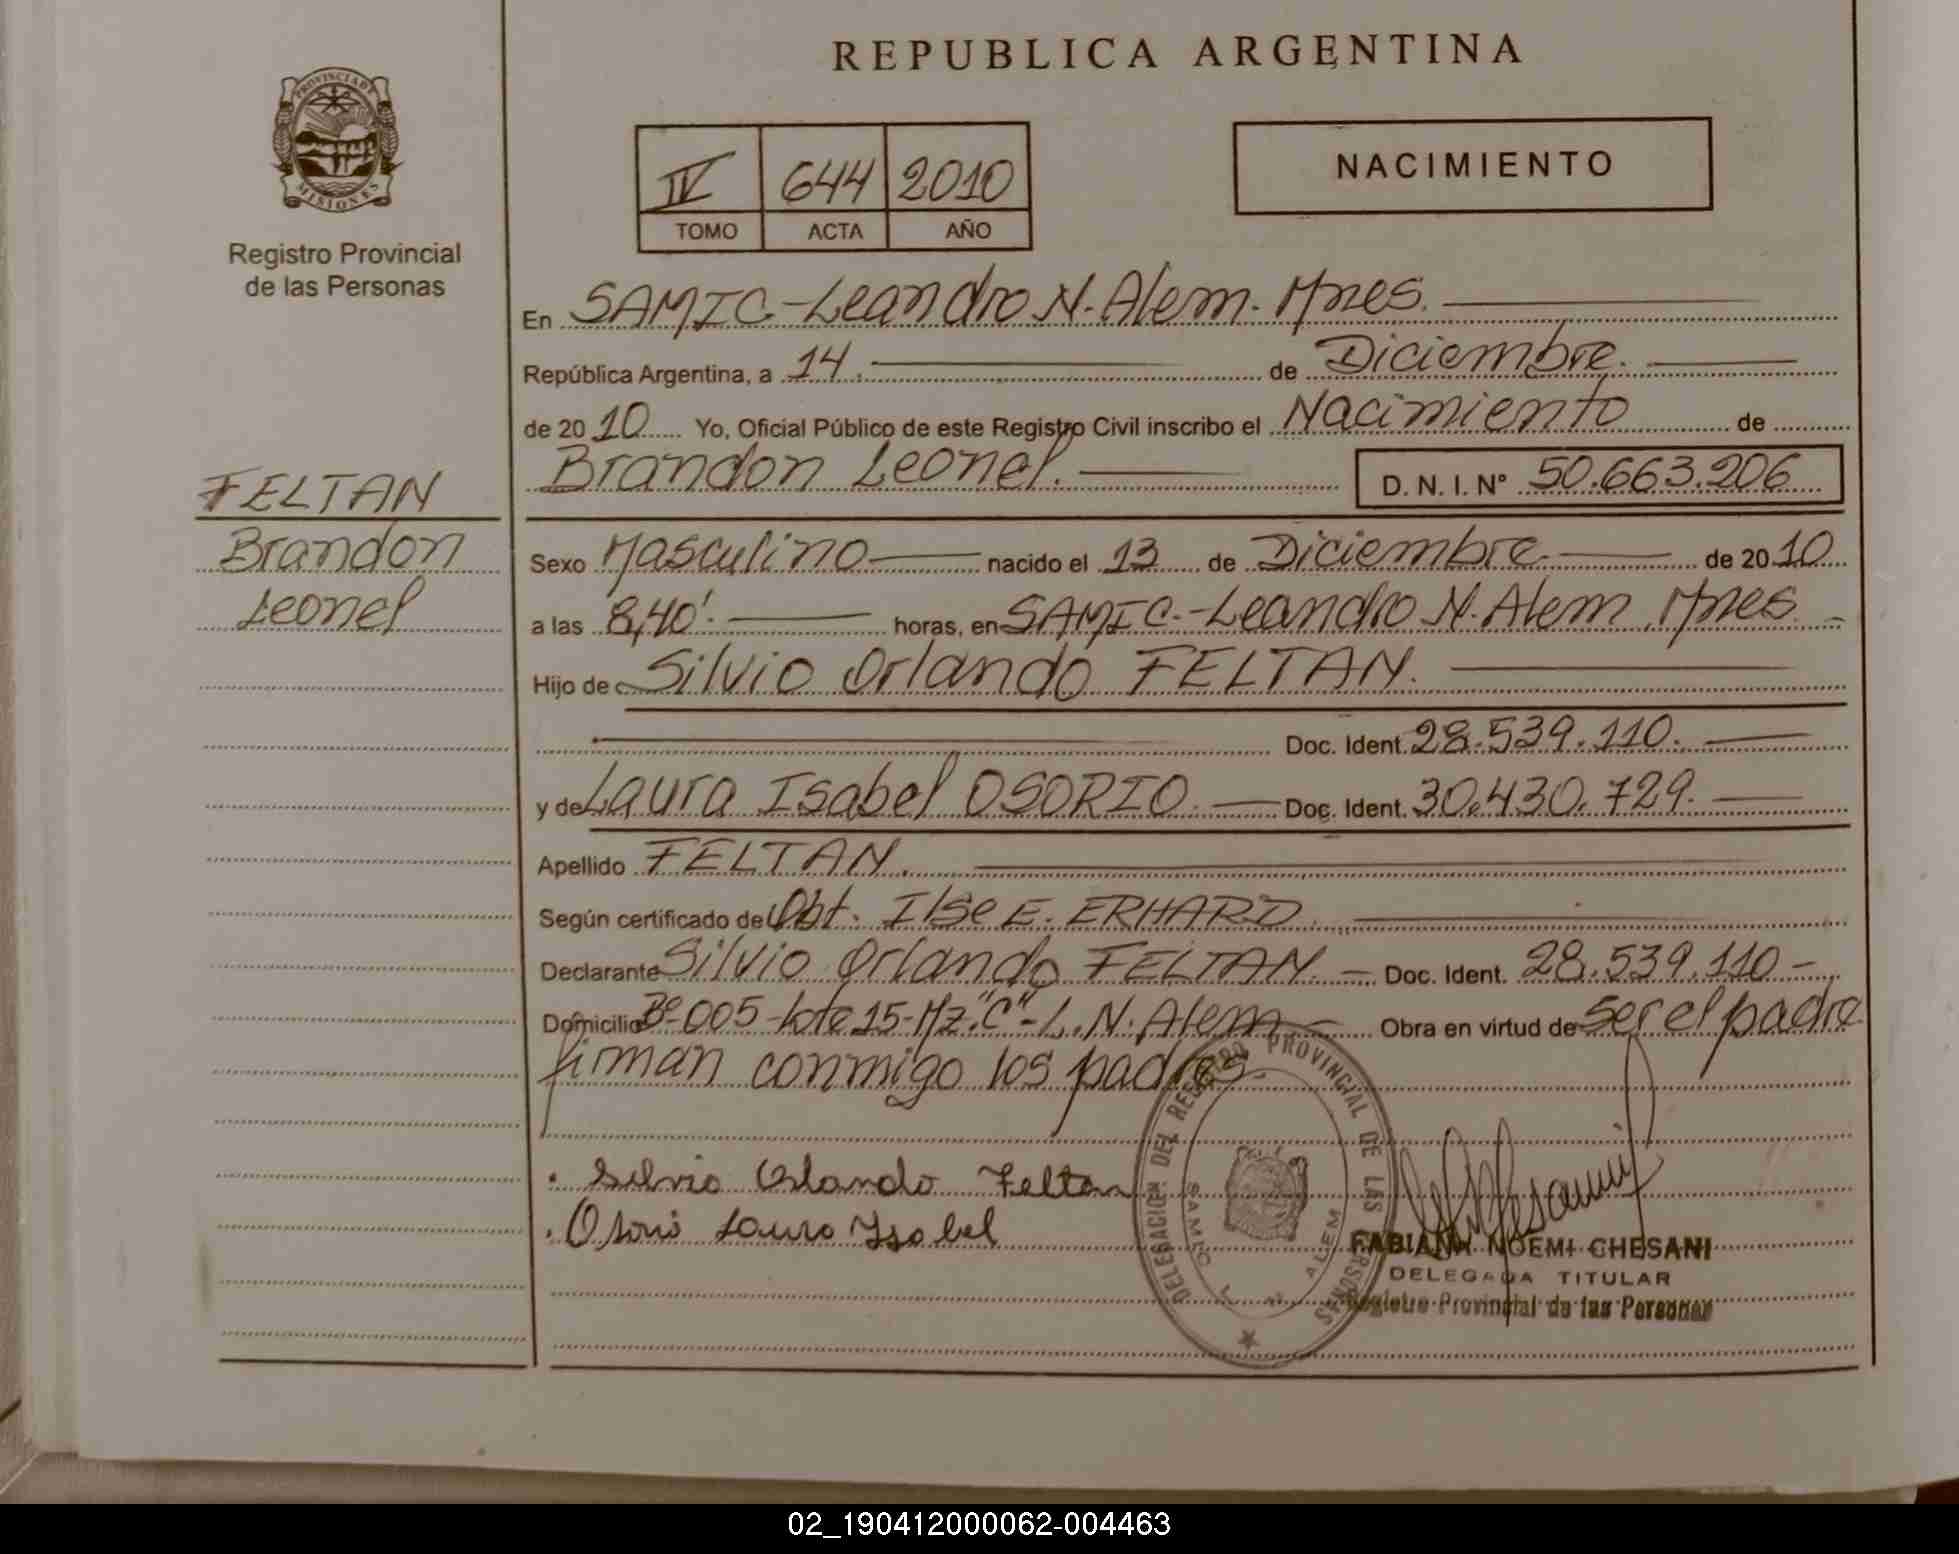 REPUBLICA ARGENTINA
PROVINCIA DE
MISIONES
Registro Provincial
de las Personas
IV 644 2010
TOMO ACTA AÑO
NACIMIENTO
En SAMIC-Leandro N. Alem. Mnes.
República Argentina, a 14. de Diciembre.
de 2010 Yo, Oficial Público de este Registro Civil inscribo el Nacimiento de
Brandon Leonel. D. N. I. N° 50.663.206
FELTAN
Brandon
Leonel
Sexo Masculino nacido el 13 de Diciembre de 2010
a las 8,40'. horas, en SAMIC.-Leandro N. Alem Mnes
Hijo de Silvio Orlando FELTAN.
Doc. Ident. 28.539.110.
y de Laura Isabel OSORIO. Doc. Ident. 30.430.729.
Apellido FELTAN.
Según certificado de Obt. Ilse E. ERHARD
Declarante Silvio Orlando FELTAN. Doc. Ident. 28.539.110-
Domicilio Bº-005-lote 15-Mz."C"-L.N. Alem- Obra en virtud de ser el padre
firman conmigo los padres.
Silvio Orlando Feltan
Osorio Laura Isabel
DELEGACION DEL REGISTRO PROVINCIAL DE LAS PERSONAS
SAMIC L. N. ALEM
FABIANA NOEMI CHESANI
DELEGADA TITULAR
Registro Provincial de las Personas
02_190412000062-004463